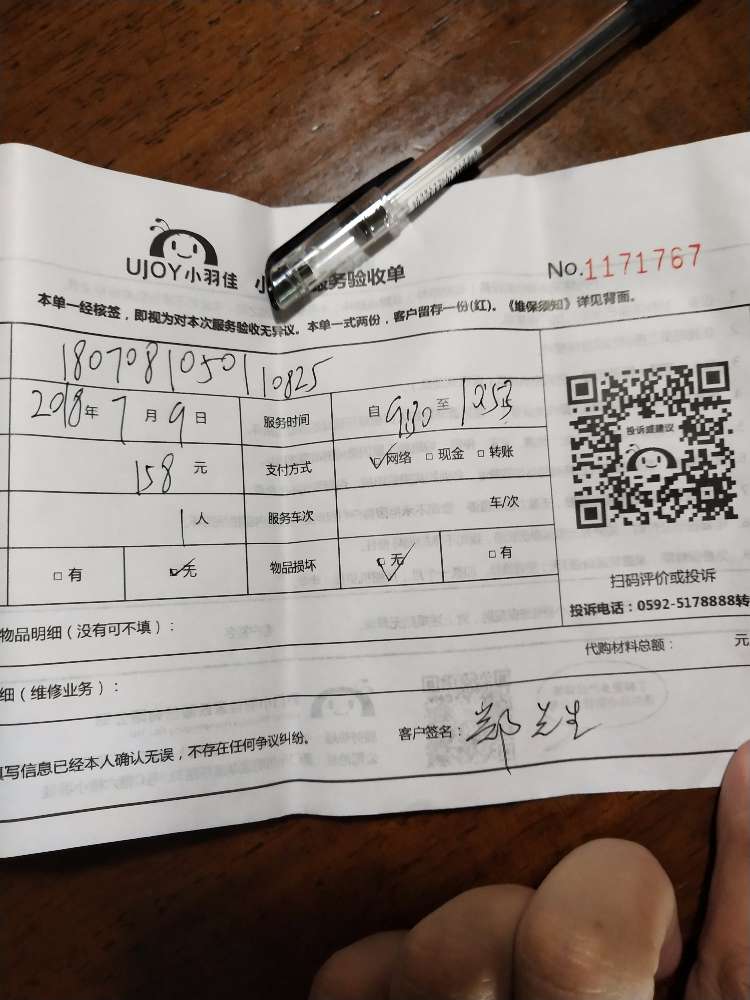 UJOY小羽佳 小 服务验收单
No.1171767
本单一经核签，即视为对本次服务验收无异议。本单一式两份，客户留存一份(红)。《维保须知》详见背面。
180708105010825
2018年7月9日 服务时间 自9:30至
158元 支付方式 ☑网络 □现金 □转账
1人 服务车次 车/次
□有 ☑无 物品损坏 ☑无 □有
投诉或建议
扫码评价或投诉
投诉电话：0592-5178888转
物品明细（没有可不填）：
代购材料总额： 元
细（维修业务）：
填写信息已经本人确认无误，不存在任何争议纠纷。 客户签名：郑先生